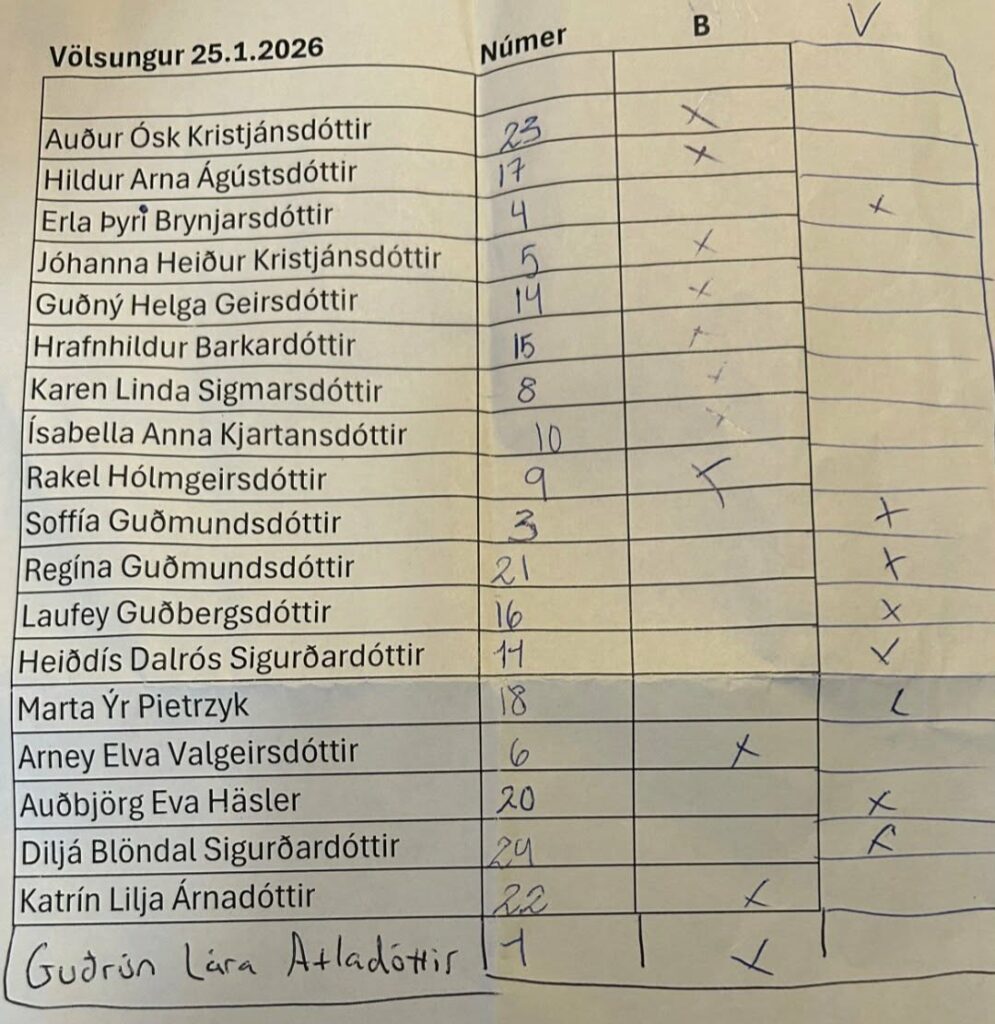 Völsungur 25.1.2026 Númer B V
Auður Ósk Kristjánsdóttir 23 X
Hildur Arna Ágústsdóttir 17 X
Erla Þyri Brynjarsdóttir 4 X
Jóhanna Heiður Kristjánsdóttir 5 X
Guðný Helga Geirsdóttir 14 X
Hrafnhildur Barkardóttir 15 X
Karen Linda Sigmarsdóttir 8 X
Ísabella Anna Kjartansdóttir 10 X
Rakel Hólmgeirsdóttir 9 X
Soffía Guðmundsdóttir 3 X
Regína Guðmundsdóttir 21 X
Laufey Guðbergsdóttir 16 X
Heiðdís Dalrós Sigurðardóttir 11 X
Marta Ýr Pietrzyk 18
Arney Elva Valgeirsdóttir 6 X
Auðbjörg Eva Häsler 20 X
Diljá Blöndal Sigurðardóttir X
Katrín Lilja Árnadóttir 22 X
Guðrún Lára Atladóttir 1 X